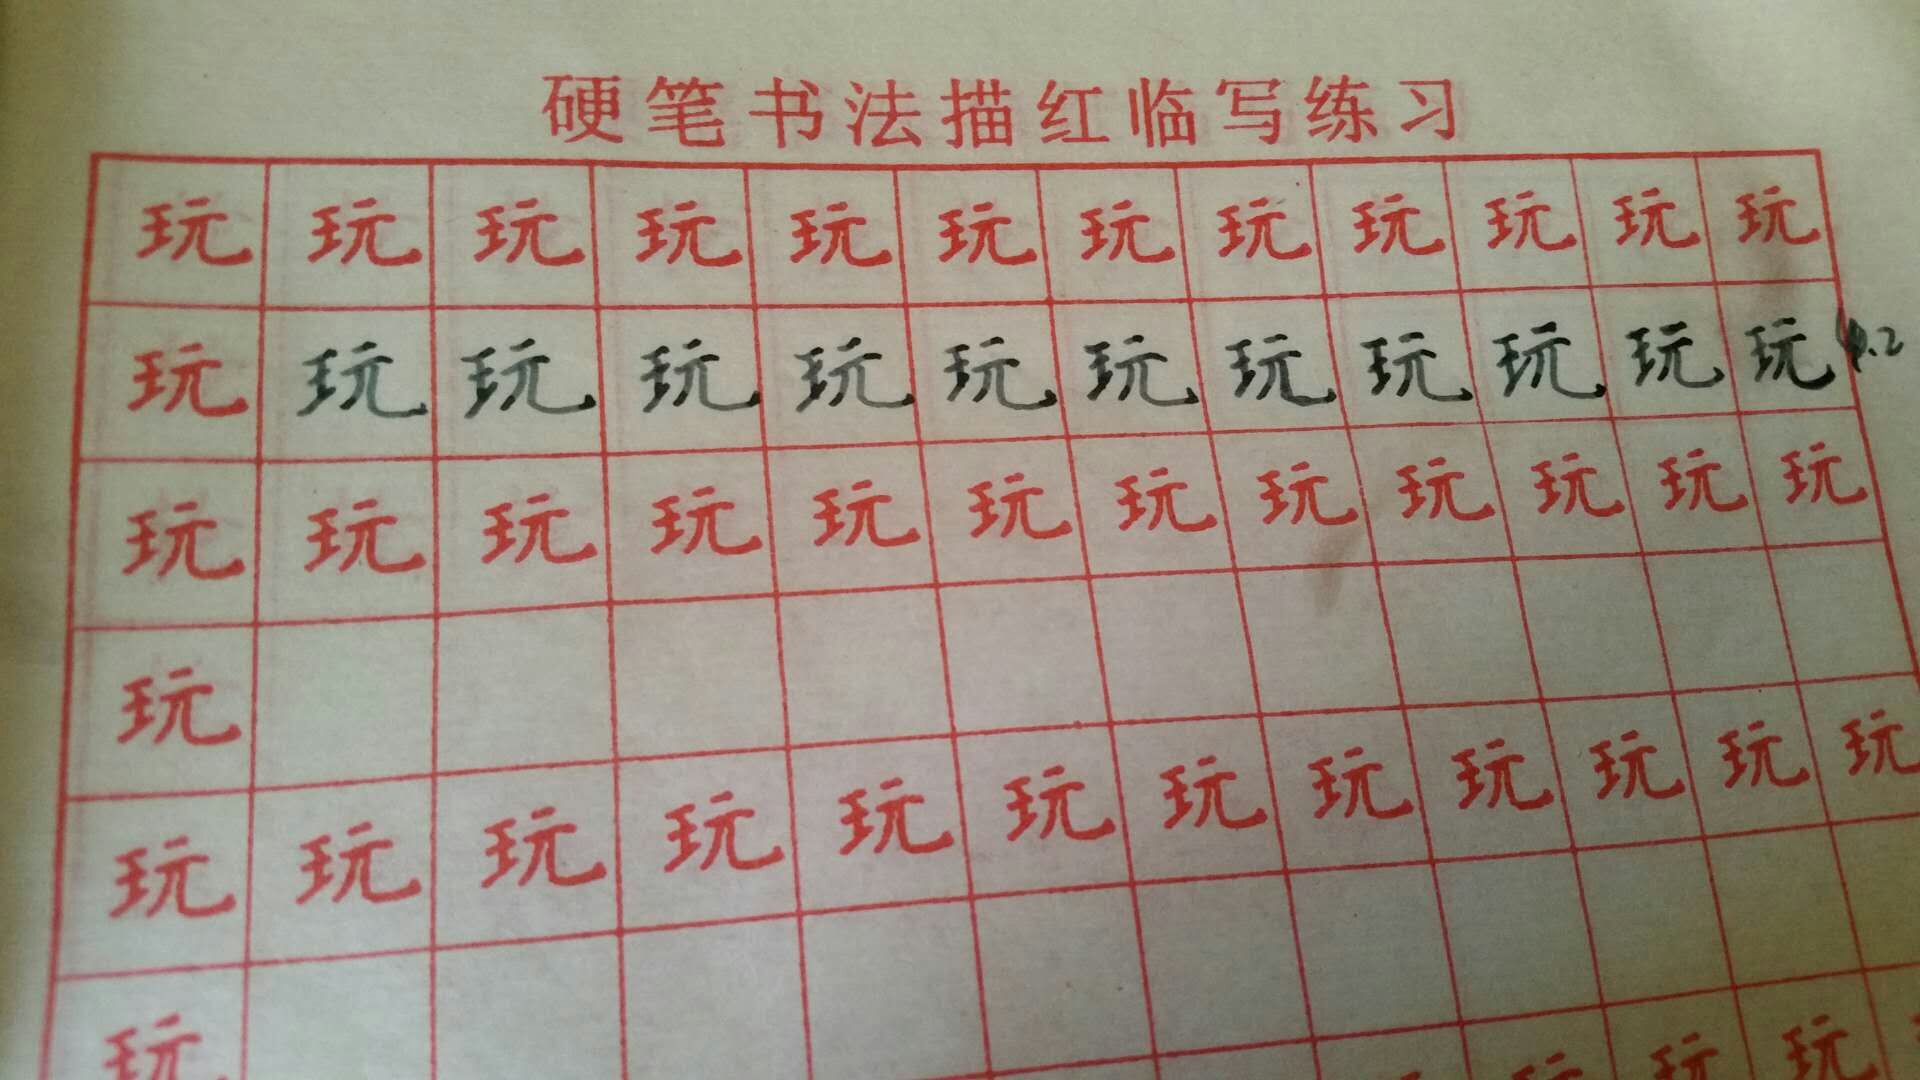 硬笔书法描红临写练习
玩 玩 玩 玩 玩 玩 玩 玩 玩 玩 玩 玩
玩 玩 玩 玩 玩 玩 玩 玩 玩 玩 玩 玩
玩 玩 玩 玩 玩 玩 玩 玩 玩 玩 玩 玩
玩
玩 玩 玩 玩 玩 玩 玩 玩 玩 玩 玩 玩
玩 玩 玩 玩